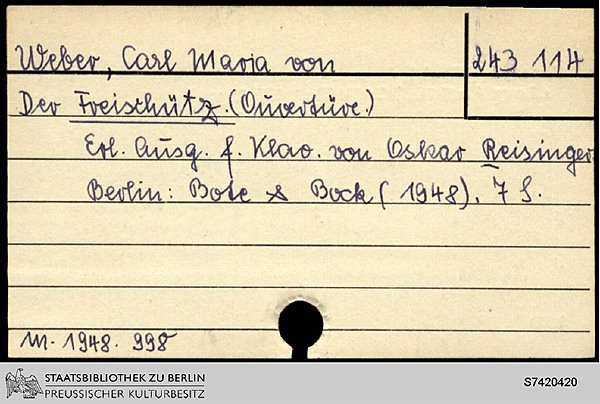 Weber, Carl Maria von
243 114
Der Freischütz. (Ouvertüre.)
Erl. Ausg. f. Klav. von Oskar Reisinger
Berlin: Bote & Bock (1948). 7 S.
M. 1948. 998
STAATSBIBLIOTHEK ZU BERLIN
PREUSSISCHER KULTURBESITZ
S7420420